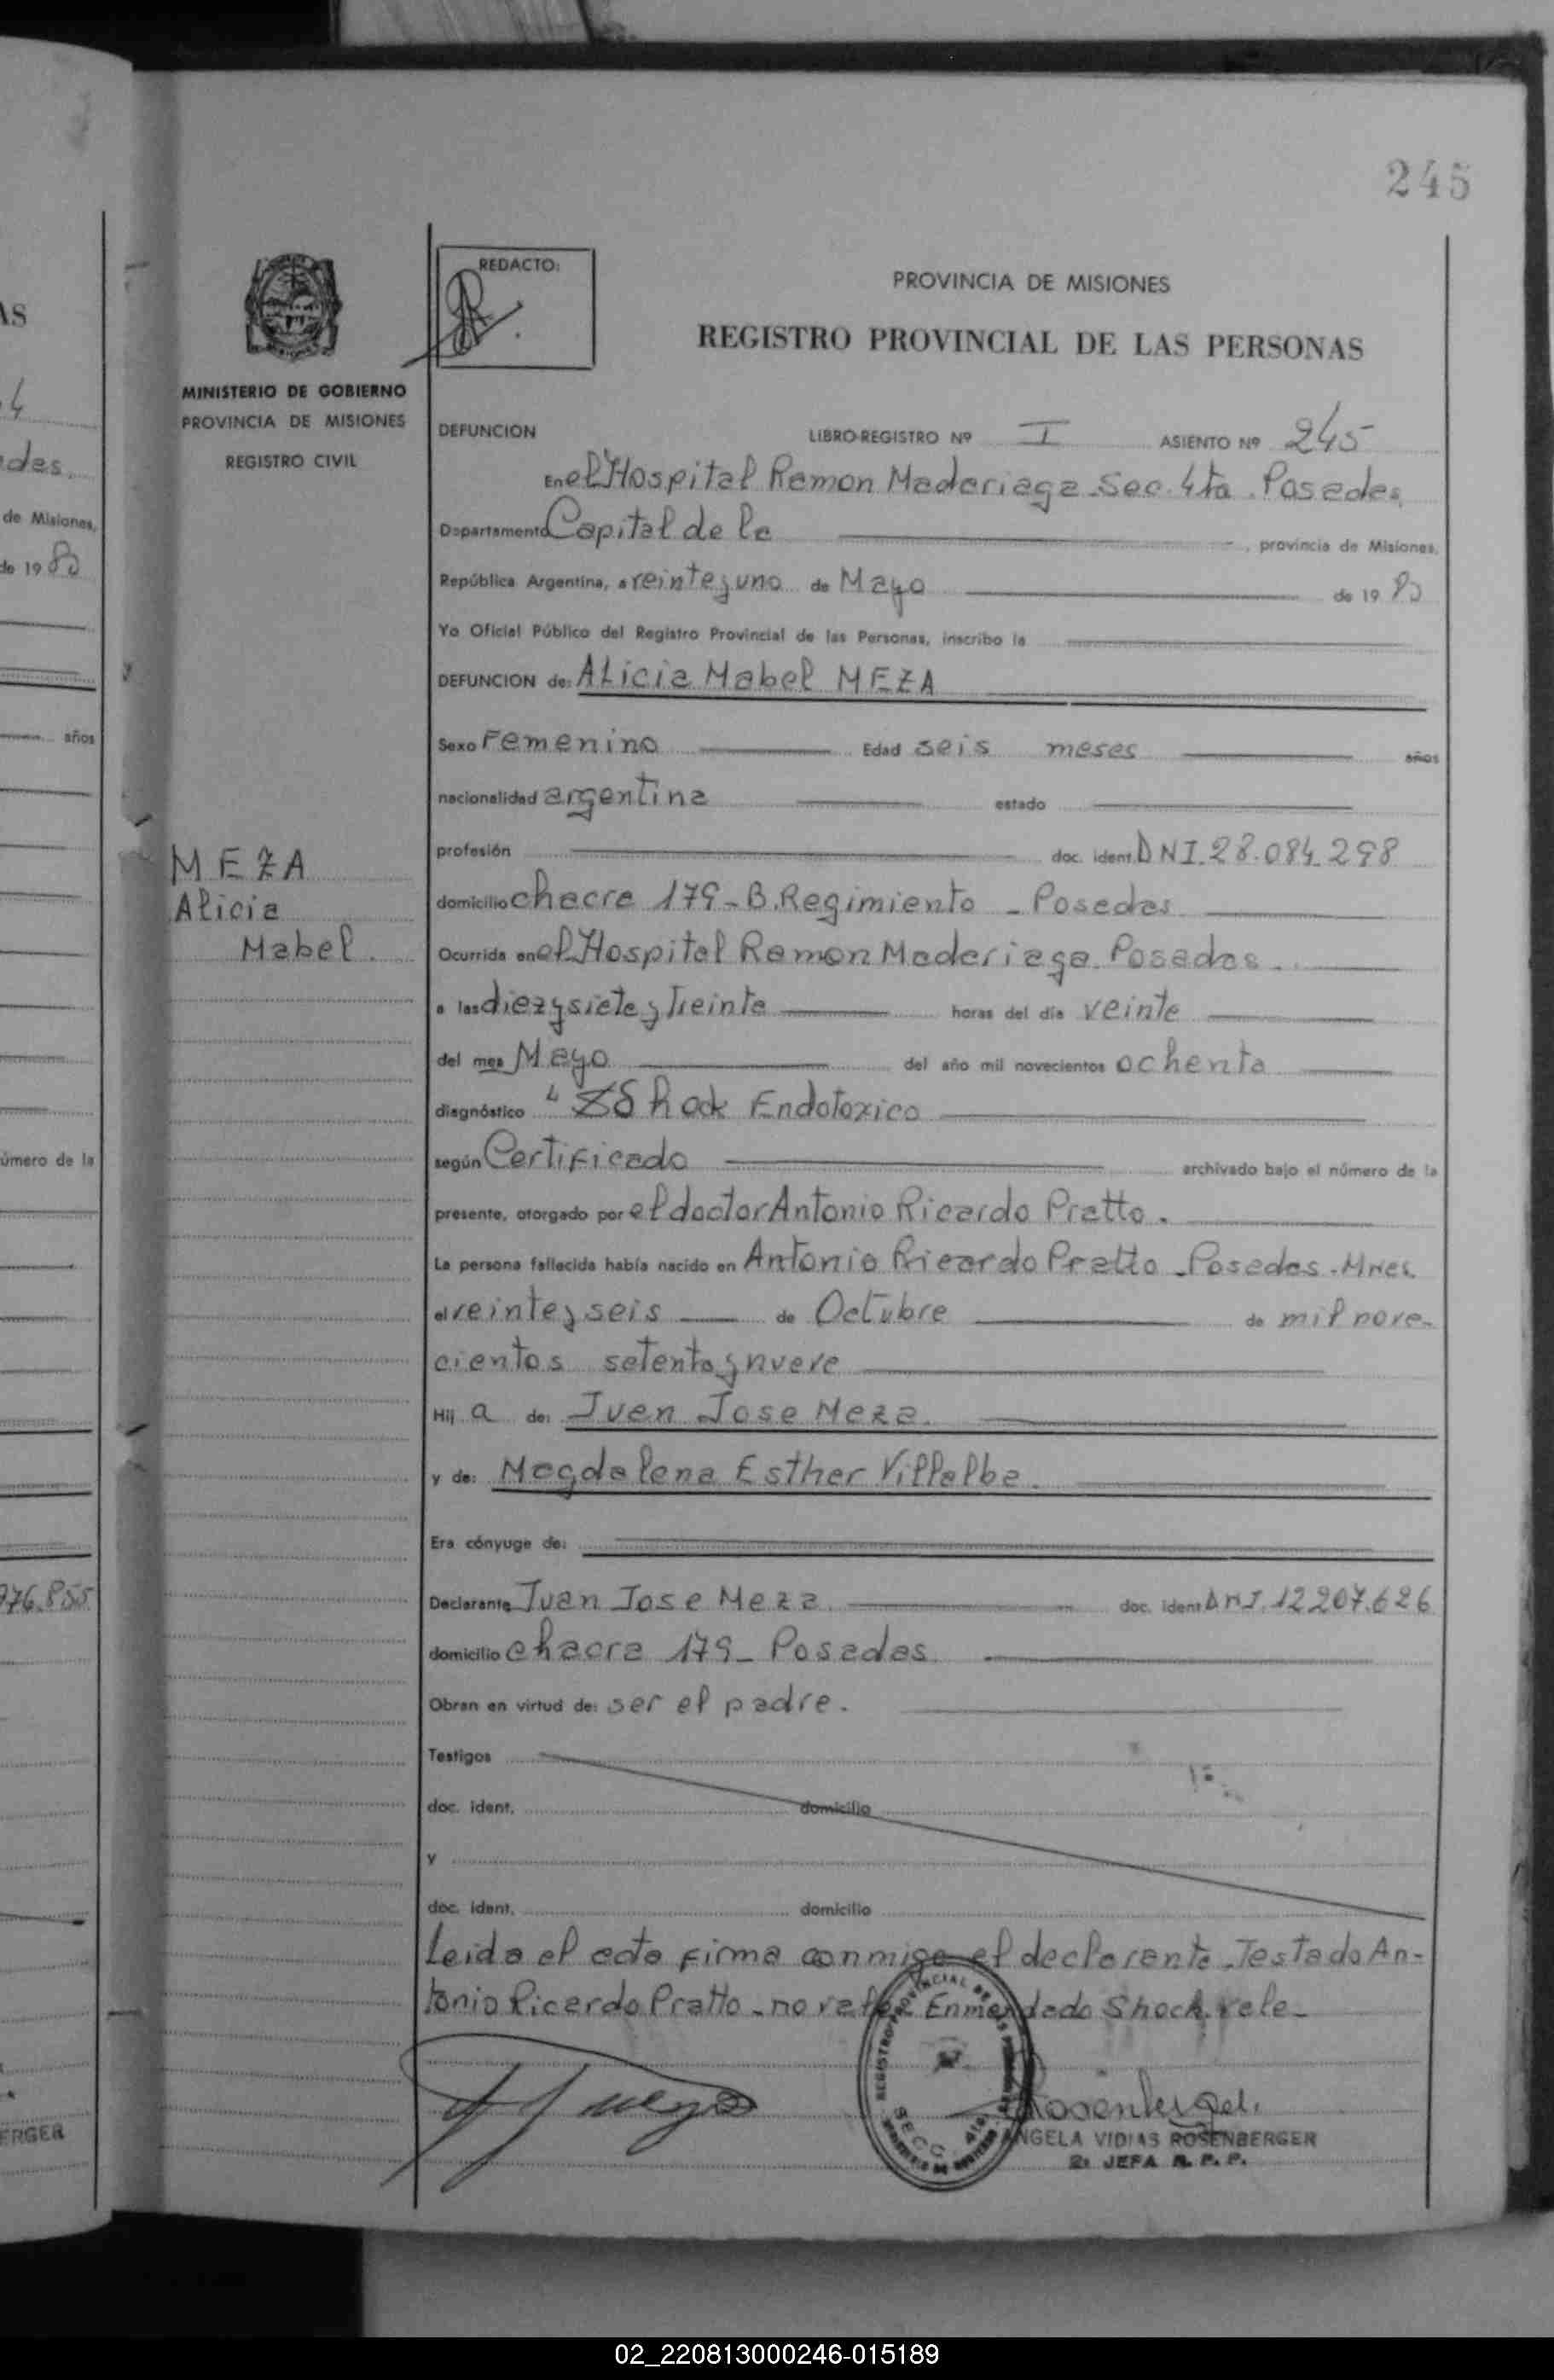 245
REDACTO:
PROVINCIA DE MISIONES
REGISTRO PROVINCIAL DE LAS PERSONAS
MINISTERIO DE GOBIERNO
PROVINCIA DE MISIONES
REGISTRO CIVIL
DEFUNCION LIBRO-REGISTRO Nº I ASIENTO Nº 245
En el Hospital Ramon Madariaga Sec. 4ta. Posadas
Departamento Capital de la , provincia de Misiones,
República Argentina, a veinte y uno de Mayo de 19 80
Yo Oficial Público del Registro Provincial de las Personas, inscribo la
DEFUNCION de: Alicia Mabel MEZA
Sexo Femenino Edad seis meses años
nacionalidad argentina estado
profesión doc. ident. DNI. 28.084.298
MEZA
Alicia
Mabel.
domicilio chacra 179 - B. Regimiento - Posadas
Ocurrida en el Hospital Ramon Madariaga. Posadas.
a las diez y siete y treinta horas del día veinte
del mes Mayo del año mil novecientos ochenta
diagnóstico " Shock Endotoxico
según Certificado archivado bajo el número de la
presente, otorgado por el doctor Antonio Ricardo Pratto.
La persona fallecida había nacido en Antonio Ricardo Pratto - Posadas - Mnes.
el veinte y seis de Octubre de mil nove-
cientos setenta y nueve
Hij a de: Juan Jose Meza.
y de: Magdalena Esther Villalba.
Era cónyuge de:
Declarante Juan Jose Meza doc. ident DNI. 12.207.626
domicilio chacra 179 - Posadas.
Obran en virtud de: ser el padre.
Testigos
doc. ident. domicilio
y
doc. ident. domicilio
Leida el acta firma conmigo el declarante. Testado An-
tonio Ricardo Pratto - no vale. Enmendado Shock. vale -
REGISTRO PROVINCIAL DE LAS PERSONAS
SECC. 4ta.
Rosenberger
ANGELA VIDIAS ROSENBERGER
2ª JEFA R. P. P.
AS
4
ades.
de Misiones,
de 19 80
años
número de la
976.855
ERGER
02_220813000246-015189